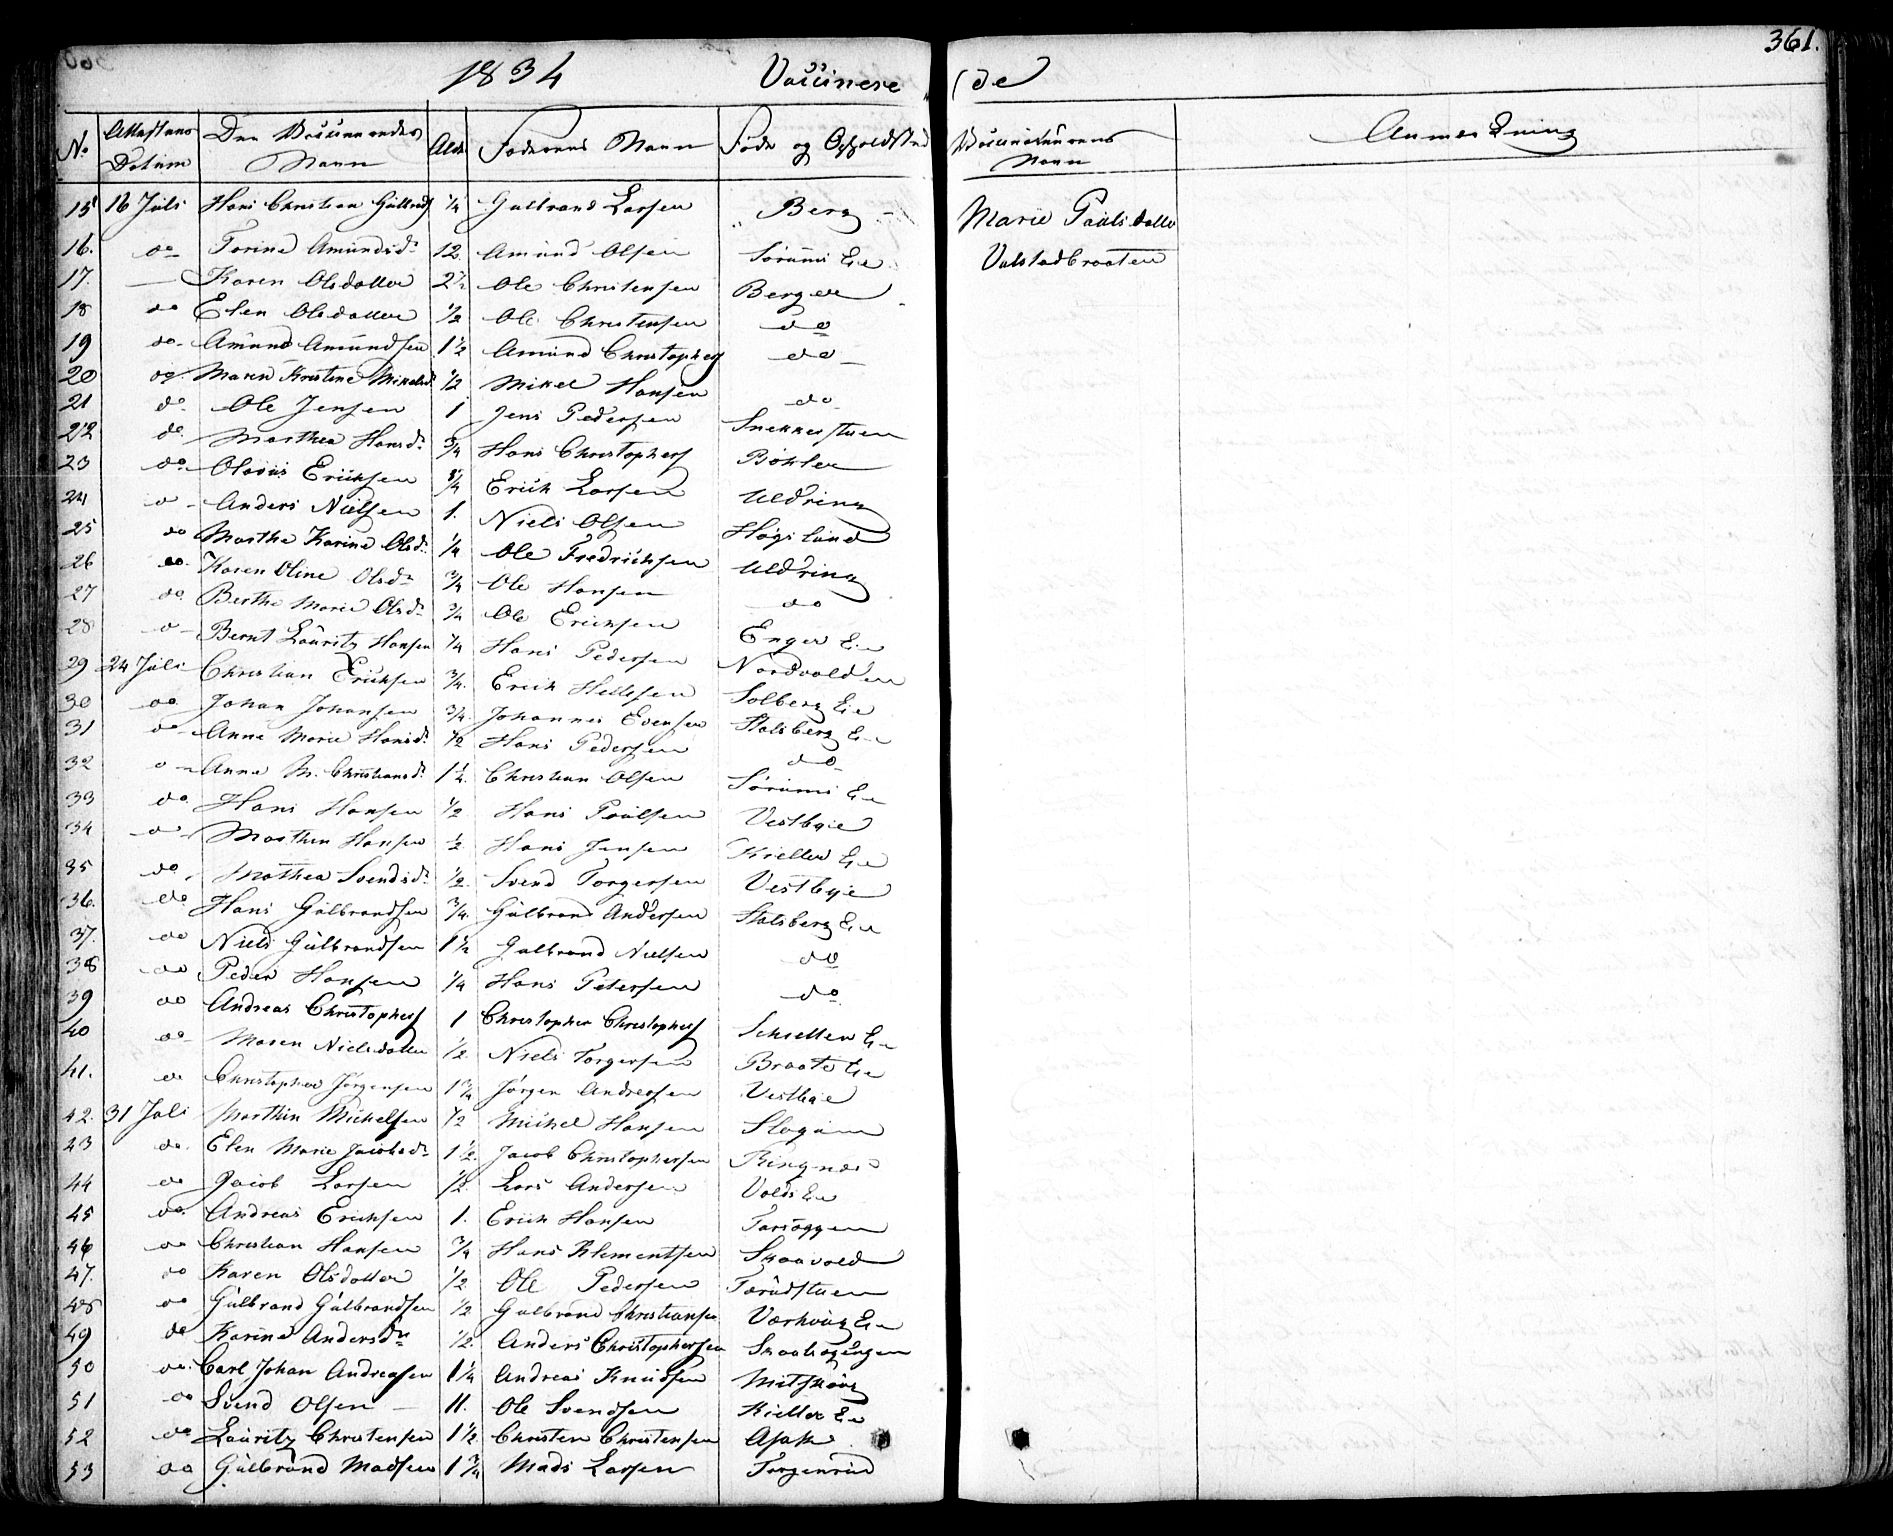 361.
1834 Vaccinere de
No Attestens Datum Den Vaccinerendes Navn Ald. Faderens Navn Føde og Opholdsted Vaccinateurens Navn Anmærkning
15 16 Juli Hans Christian Gulbrands 1/4 Gulbrand Larsen Berg Marie Paulsdatter
16. do Torine Amundsdr 12. Amund Olsen Sørums Eie Valstadbraaten
17. — Karen Olsdatter 2 1/2 Ole Christensen Berger
18 do Elen Olsdatter 1/2 Ole Christensen do
19 do Amund Amundsen 1 1/2 Amund Christophers do
20 do Maren Kristine Mikelsd 1/2 Mikel Hansen do
21 do Ole Jensen 1 Jens Pedersen Snekkerstuen
22 do Marthea Hansdr 3/4 Hans Christophers Böhler
23 do Olavus Ericksen 3/4 Erick Larsen Uldring
24 do Anders Nielsen 1. Niels Olsen Høgslund
25 do Marthe Karine Olsdr 1/4 Ole Fredricksen Uldring
26 do Karen Oline Olsdr 3/4 Ole Hansen do
27 do Berthe Marie Olsdr 3/4 Ole Ericksen Enger Eie
28 do Bernt Lauritz Hansen 1/4 Hans Pedersen Nordvolden
29 24 Juli Christian Ericksen 3/4. Erick Hellesen Solberg Eie
30 do Johan Johansen 3/4. Johannes Evensen Stalsberg Eie
31 do Anne Marie Hansdr 1/2 Hans Pedersen do
32 do Anne M. Christiansdr 1 1/2. Christian Olsen Sørums Eie
33 do Hans Hansen 1/2 Hans Paulsen Vestbye
34 do Marthin Hansen 1/2 Hans Jensen Kieller Eie
35 do Mathea Svendsdr 1/2. Svend Torgersen Vestbye
36. do Hans Gulbrandsen 3/4. Gulbrand Andersen Stalsberg Eie
37. do Niels Gulbrandsen 1 1/2 Gulbrand Nielsen do
38 do Peder Hansen 1/4 Hans Petersen do
39 do Andreas Christophers 1 Christopher Christophers Schietten Eie
40 do Maren Nielsdatter 1/2 Niels Torgersen Braate Eie
41. do Christopher Jørgensen 1 3/4 Jørgen Andersen Vestbye
42. 31 Juli Marthin Michelsen 1/2 Michel Hansen Slogum
43 do Elen Marie Jacobsdr 1 1/2. Jacob Christophersen Ringnæs
44 do Jacob Larsen 1/2 Lars Andersen Volds Eie
45 do Andreas Ericksen 1. Erick Hansen
46 do Christian Hansen 3/4 Hans Klementsen Skaavold
47. do Karen Olsdatter 1/2 Ole Pedersen Tærudstuen
48 do Gulbrand Gulbrandsen 1/2 Gulbrand Christiansen Værhoug Eie
49 do Karine Andersdr 1/2. Anders Christophersen
50 do Carl Johan Andreasen 1 1/4 Andreas Knudsen Mitskoug
51 do Svend Olsen — 11. Ole Svendsen Kieller Eie
52 do Lauritz Christensen 1 1/2 Christen Christensen Asak
53 do Gulbrand Madsen 1 3/4 Mads Larsen Torgenrud